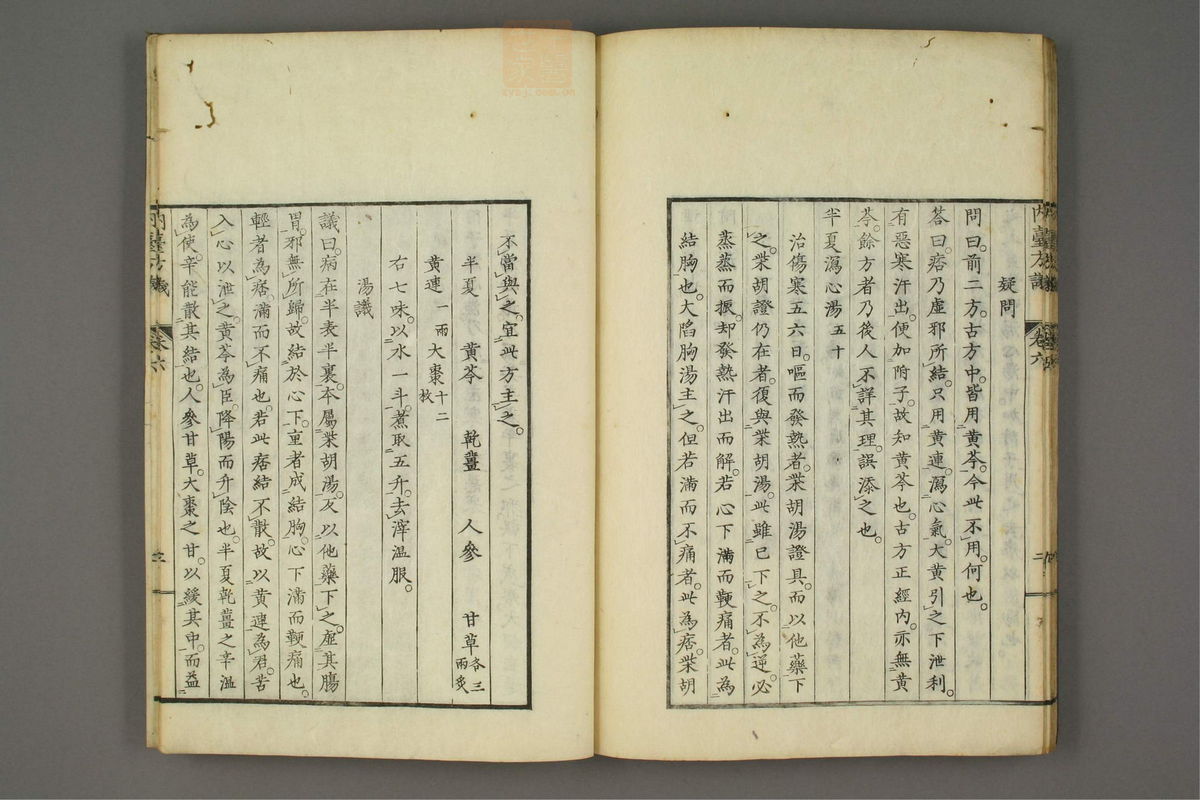 疑問
問曰。前二方。古方中。皆用黄芩。今此不用。何也。
答曰。痞乃虛邪所結。只用黄連。瀉心氣。大黄引之下泄利。
有惡寒汗出。便加附子。故知黄芩也。古方正經內。亦無黄
芩。餘方者乃後人不詳其理。誤添之也。
半夏瀉心湯五十
治傷寒五六日。嘔而發熱者。柴胡湯證具。而以他藥下
之。柴胡證仍在者。復與柴胡湯。此雖已下之。不為逆。必
蒸蒸而振。却發熱汗出而解。若心下滿而鞕痛者。此為
結胸也。大陷胸湯主之。但若滿而不痛者。此為痞。柴胡
不當與之。宜此方主之。
半夏 黄芩 乾薑 人參 甘草各三兩炙
黄連一兩 大棗十二枚
右七味。以水一斗。煮取五升。去滓溫服。
湯議
議曰。病在半表半裏。本屬柴胡湯。反以他藥下之。虛其腸
胃。邪無所歸。故結於心下。重者成結胸。心下滿而鞕痛也。
輕者為痞。滿而不痛也。若此痞結不散。故以黄連為君。苦
入心以泄之。黄芩為臣。降陽而升陰也。半夏乾薑之辛溫
為使。辛能散其結也。人參甘草大棗之甘。以緩其中。而益
內臺方議 卷六 三